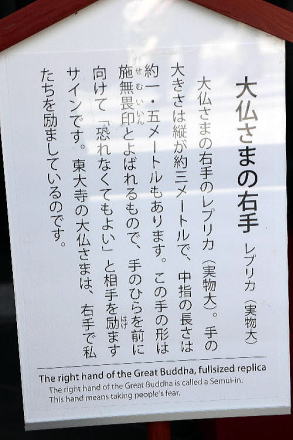 大仏さまの右手 レプリカ（実物大）
大仏さまの右手のレプリカ（実物大）。手の
大きさは縦が約三メートルで、中指の長さは
約一・五メートルもあります。この手の形は
施無畏印とよばれるもので、手のひらを前に
向けて「恐れなくてもよい」と相手を励ます
サインです。東大寺の大仏さまは、右手で私
たちを励ましているのです。
The right hand of the Great Buddha, fullsized replica
The right hand of the Great Buddha is called a Semui-in.
This hand means taking people's fear.